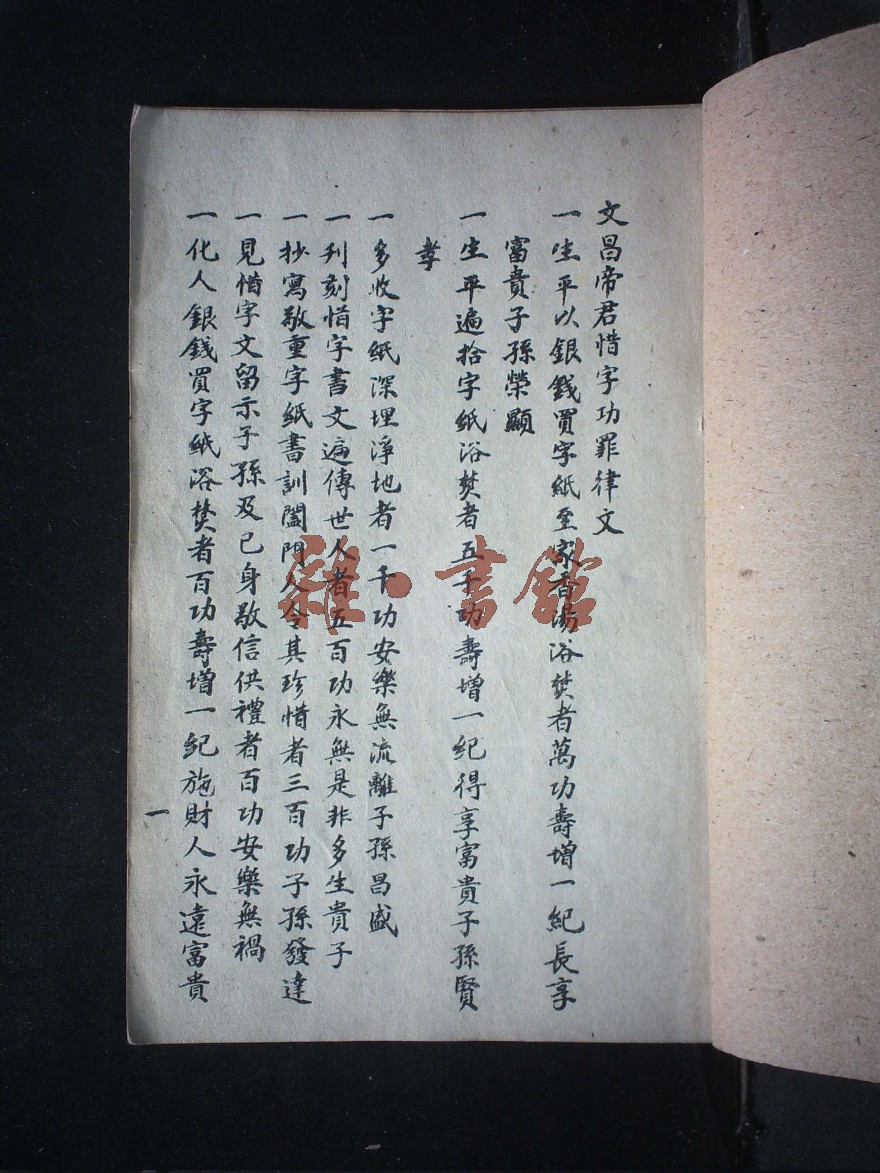 文昌帝君惜字功罪律文
一生平以銀錢買字紙至家香湯浴焚者萬功壽增一紀長享
富貴子孫榮顯
一生平遍拾字紙浴焚者五千功壽增一紀得享富貴子孫賢
孝
一多收字紙深埋淨地者一千功安樂無流離子孫昌盛
一刋刻惜字書文遍傳世人者五百功永無是非多生貴子
一抄寫敬重字紙書訓闔門人令其珍惜者三百功子孫發達
一見惜字文留示子孫及已身敬信供禮者百功安樂無禍
一化人銀錢買字紙浴焚者百功壽增一紀施財人永遠富貴
一
雜·書館